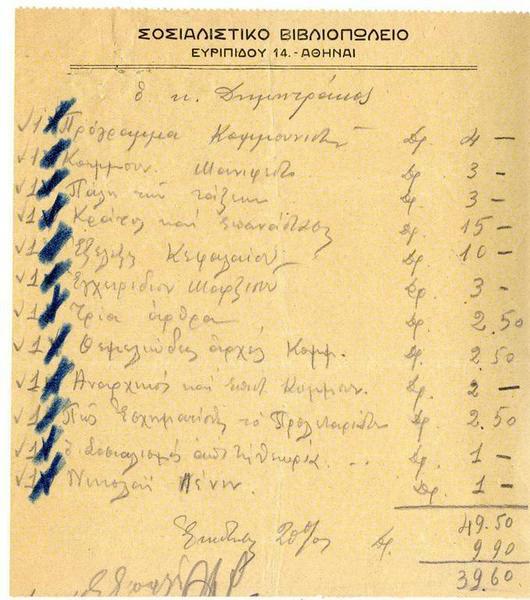 ΣΟΣΙΑΛΙΣΤΙΚΟ ΒΙΒΛΙΟΠΩΛΕΙΟ
ΕΥΡΙΠΙΔΟΥ 14.-ΑΘΗΝΑΙ
ὁ κ. Δημητράκος
√1 Πρόγραμμα Κομμουνιστ Δρ. 4 —
√1 Κομμουν. Μανιφέστο Δρ. 3 —
√1 Πάλη τῶν τάξεων Δρ. 3 —
√1 Κράτος καὶ Ἐπανάστασις Δρ. 15 —
√1 Ἐξέλιξη Κεφαλαίου Δρ. 10 —
√1 Ἐγχειρίδιον Μαρξισμοῦ Δρ. 3 -
√1 Τρία ἄρθρα Δρ. 2.50
√1 Θεμελιώδεις ἀρχές Κομμ. Δρ. 2.50
√1 Ἀναρχισμός καὶ ἐπιστ Κομμουν. Δρ. 2 —
√1 Πῶς ἐσχηματίσθη τὸ Προλεταριᾶτον Δρ. 2.50
√1 ὁ Σοσιαλισμός ... Δρ. 1 —
√1 Νικολάϊ Λένιν. Δρ. 1 —
49.50
Ἔκπτωσις 20% Δρ. 9.90
39.60